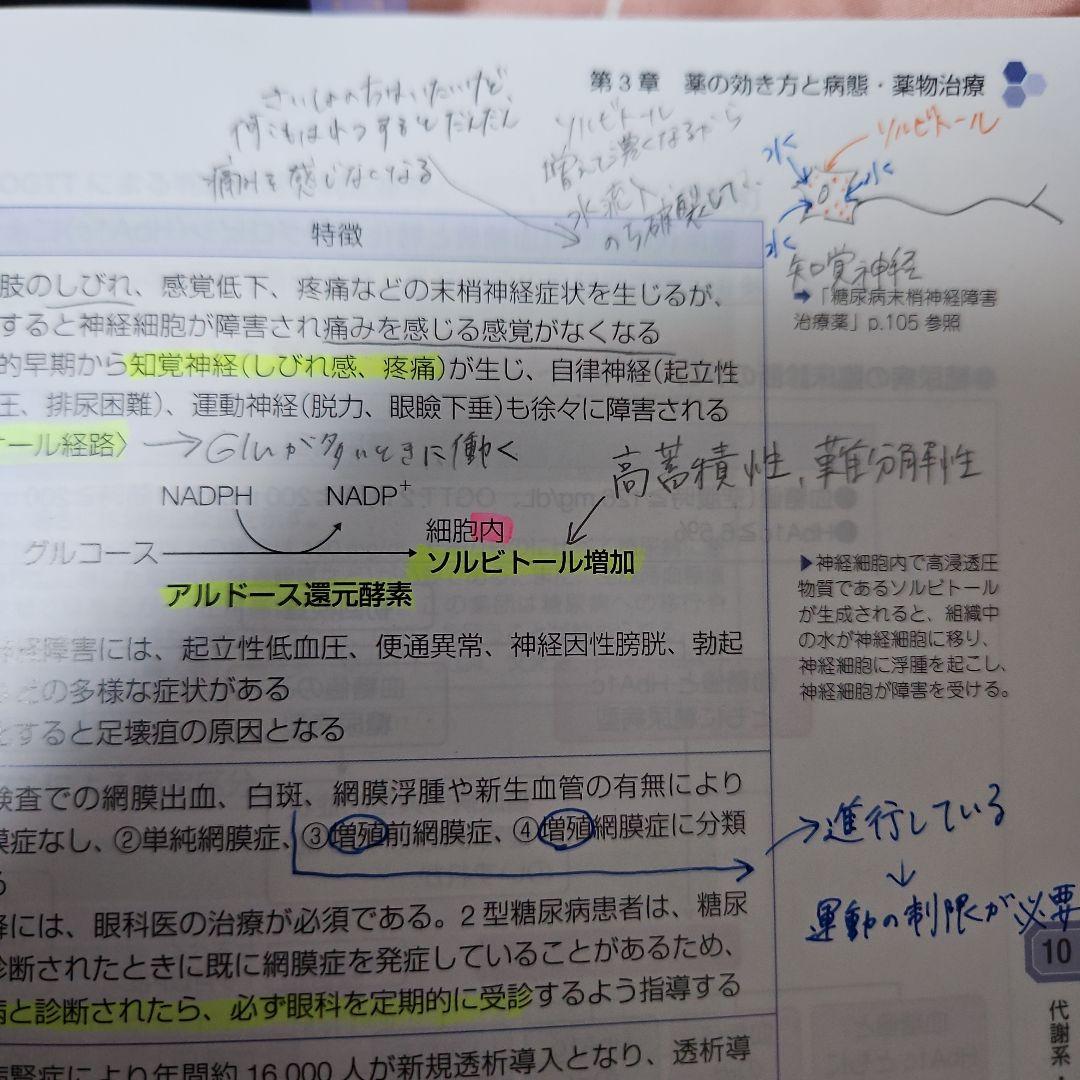 第3章 薬の効き方と病態・薬物治療
さいしょのうちはいたいけど、
何ともはれつするとだんだん
痛みを感じなくなる
ソルビトール
増えて濃くなるから
水流入
のち破裂して、
ソルビトール
水
水
水
知覚神経
➡「糖尿病末梢神経障害
治療薬」p.105 参照
特徴
肢のしびれ、感覚低下、疼痛などの末梢神経症状を生じるが、
すると神経細胞が障害され痛みを感じる感覚がなくなる
的早期から知覚神経(しびれ感、疼痛)が生じ、自律神経(起立性
圧、排尿困難)、運動神経(脱力、眼瞼下垂)も徐々に障害される
ール経路〉 → Gluが多いときに働く
高蓄積性、難分解性
NADPH NADP+
細胞内
グルコース → ソルビトール増加
アルドース還元酵素
▶神経細胞内で高浸透圧
物質であるソルビトール
が生成されると、組織中
の水が神経細胞に移り、
神経細胞に浮腫を起こし、
神経細胞が障害を受ける。
経障害には、起立性低血圧、便通異常、神経因性膀胱、勃起
どの多様な症状がある
とすると足壊疽の原因となる
検査での網膜出血、白斑、網膜浮腫や新生血管の有無により
膜症なし、②単純網膜症、③増殖前網膜症、④増殖網膜症に分類
る
→進行している
↓
運動の制限が必要
降には、眼科医の治療が必須である。2型糖尿病患者は、糖尿
診断されたときに既に網膜症を発症していることがあるため、
病と診断されたら、必ず眼科を定期的に受診するよう指導する
10
代謝系・
腎症により年間約16,000人が新規透析導入となり、透析導